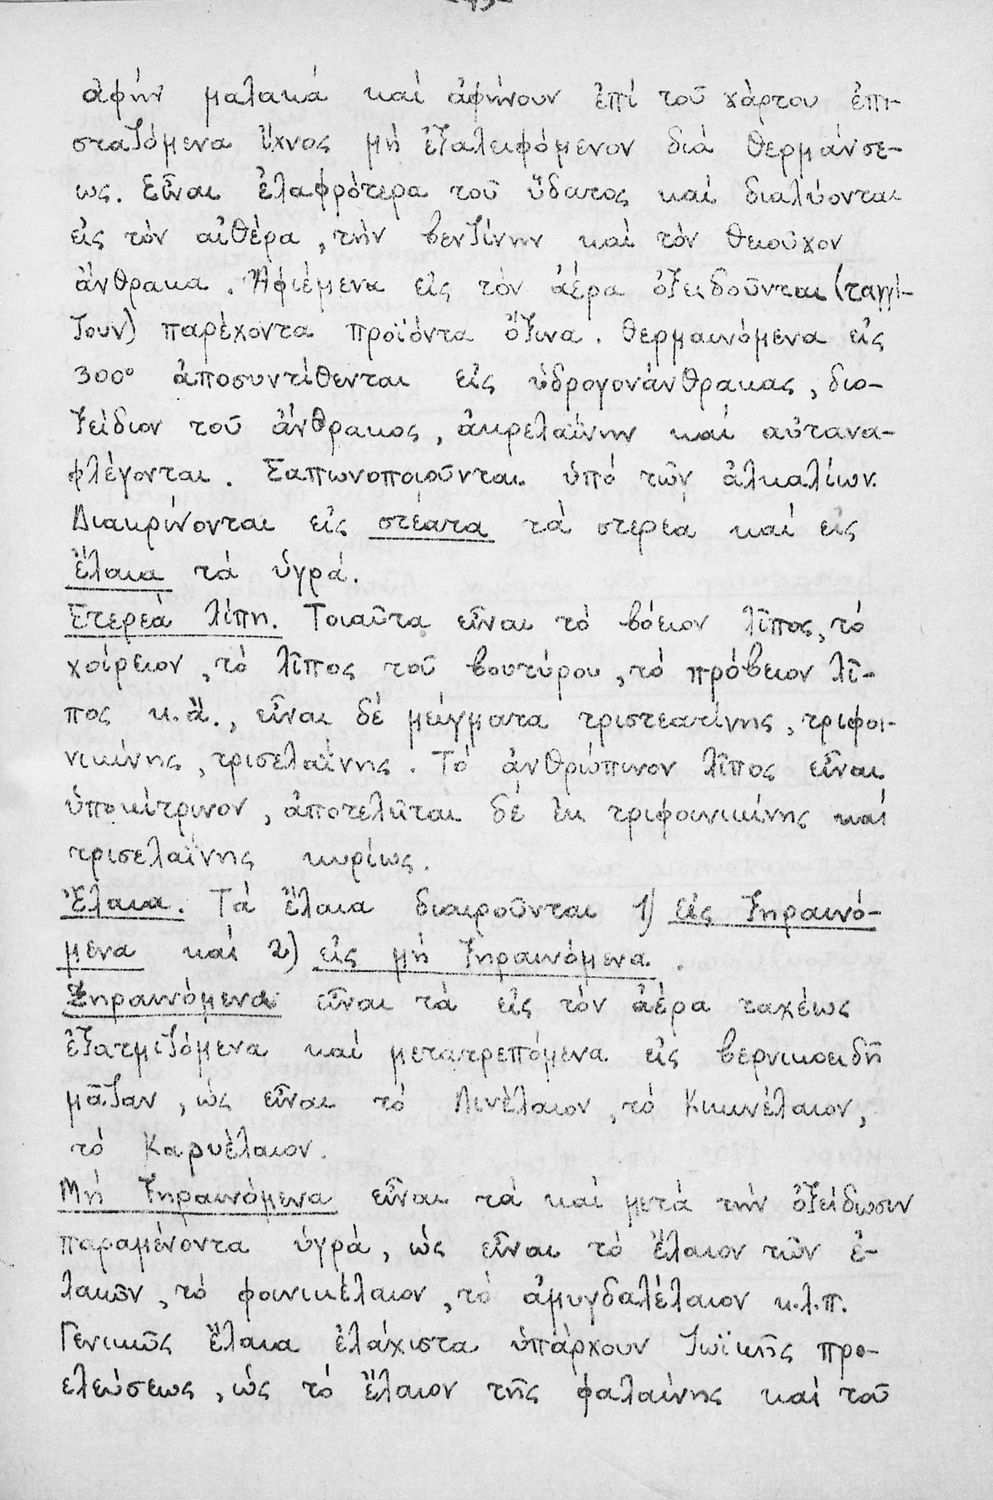 ἀφήν μαλακά καί ἀφήνουν ἐπί τοῦ χάρτου ἐπι-
σταζόμενα ἴχνος μή ἐξαλειφόμενον διά θερμάνσε-
ως. Εἶναι ἐλαφρότερα τοῦ ὕδατος καί διαλύονται
εἰς τόν αἰθέρα, τήν βενζίνην καί τόν θειοῦχον
ἄνθρακα. Ἀφιέμενα εἰς τόν ἀέρα ὀξειδοῦνται (ταγγί-
ζουν) παρέχοντα προϊόντα ὄξινα. Θερμαινόμενα εἰς
300° ἀποσυντίθενται εἰς ὑδρογονάνθρακας, διο-
ξείδιον τοῦ ἄνθρακος, ἀκρελαΐνην καί αὐτανα-
φλέγονται. Σαπωνοποιοῦνται ὑπό τῶν ἀλκαλίων.
Διακρίνονται εἰς στέατα τά στερεά καί εἰς
ἔλαια τά ὑγρά.
Στερεά λίπη. Τοιαῦτα εἶναι τό βόειον λῖπος, τό
χοίρειον, τό λῖπος τοῦ βουτύρου, τό πρόβειον λῖ-
πος κ.ἄ., εἶναι δέ μείγματα τριστεατίνης, τριφοι-
νικίνης, τρισελαΐνης. Τό ἀνθρώπινον λῖπος εἶναι
ὑποκίτρινον, ἀποτελεῖται δέ ἐκ τριφοινικίνης καί
τρισελαΐνης κυρίως.
Ἔλαια. Τά ἔλαια διαιροῦνται 1) εἰς ξηραινό-
μενα καί 2) εἰς μή ξηραινόμενα.
Ξηραινόμενα εἶναι τά εἰς τόν ἀέρα ταχέως
ἐξατμιζόμενα καί μετατρεπόμενα εἰς βερνικοειδῆ
μᾶζαν, ὡς εἶναι τό Λινέλαιον, τό Κικινέλαιον,
τό Καρυέλαιον.
Μή ξηραινόμενα εἶναι τά καί μετά τήν ὀξείδωσιν
παραμένοντα ὑγρά, ὡς εἶναι τό ἔλαιον τῶν ἐ-
λαιῶν, τό φοινικέλαιον, τό ἀμυγδαλέλαιον κ.λ.π.
Γενικῶς ἔλαια ἐλάχιστα ὑπάρχουν ζωϊκῆς προ-
ελεύσεως, ὡς τό ἔλαιον τῆς φαλαίνης καί τοῦ